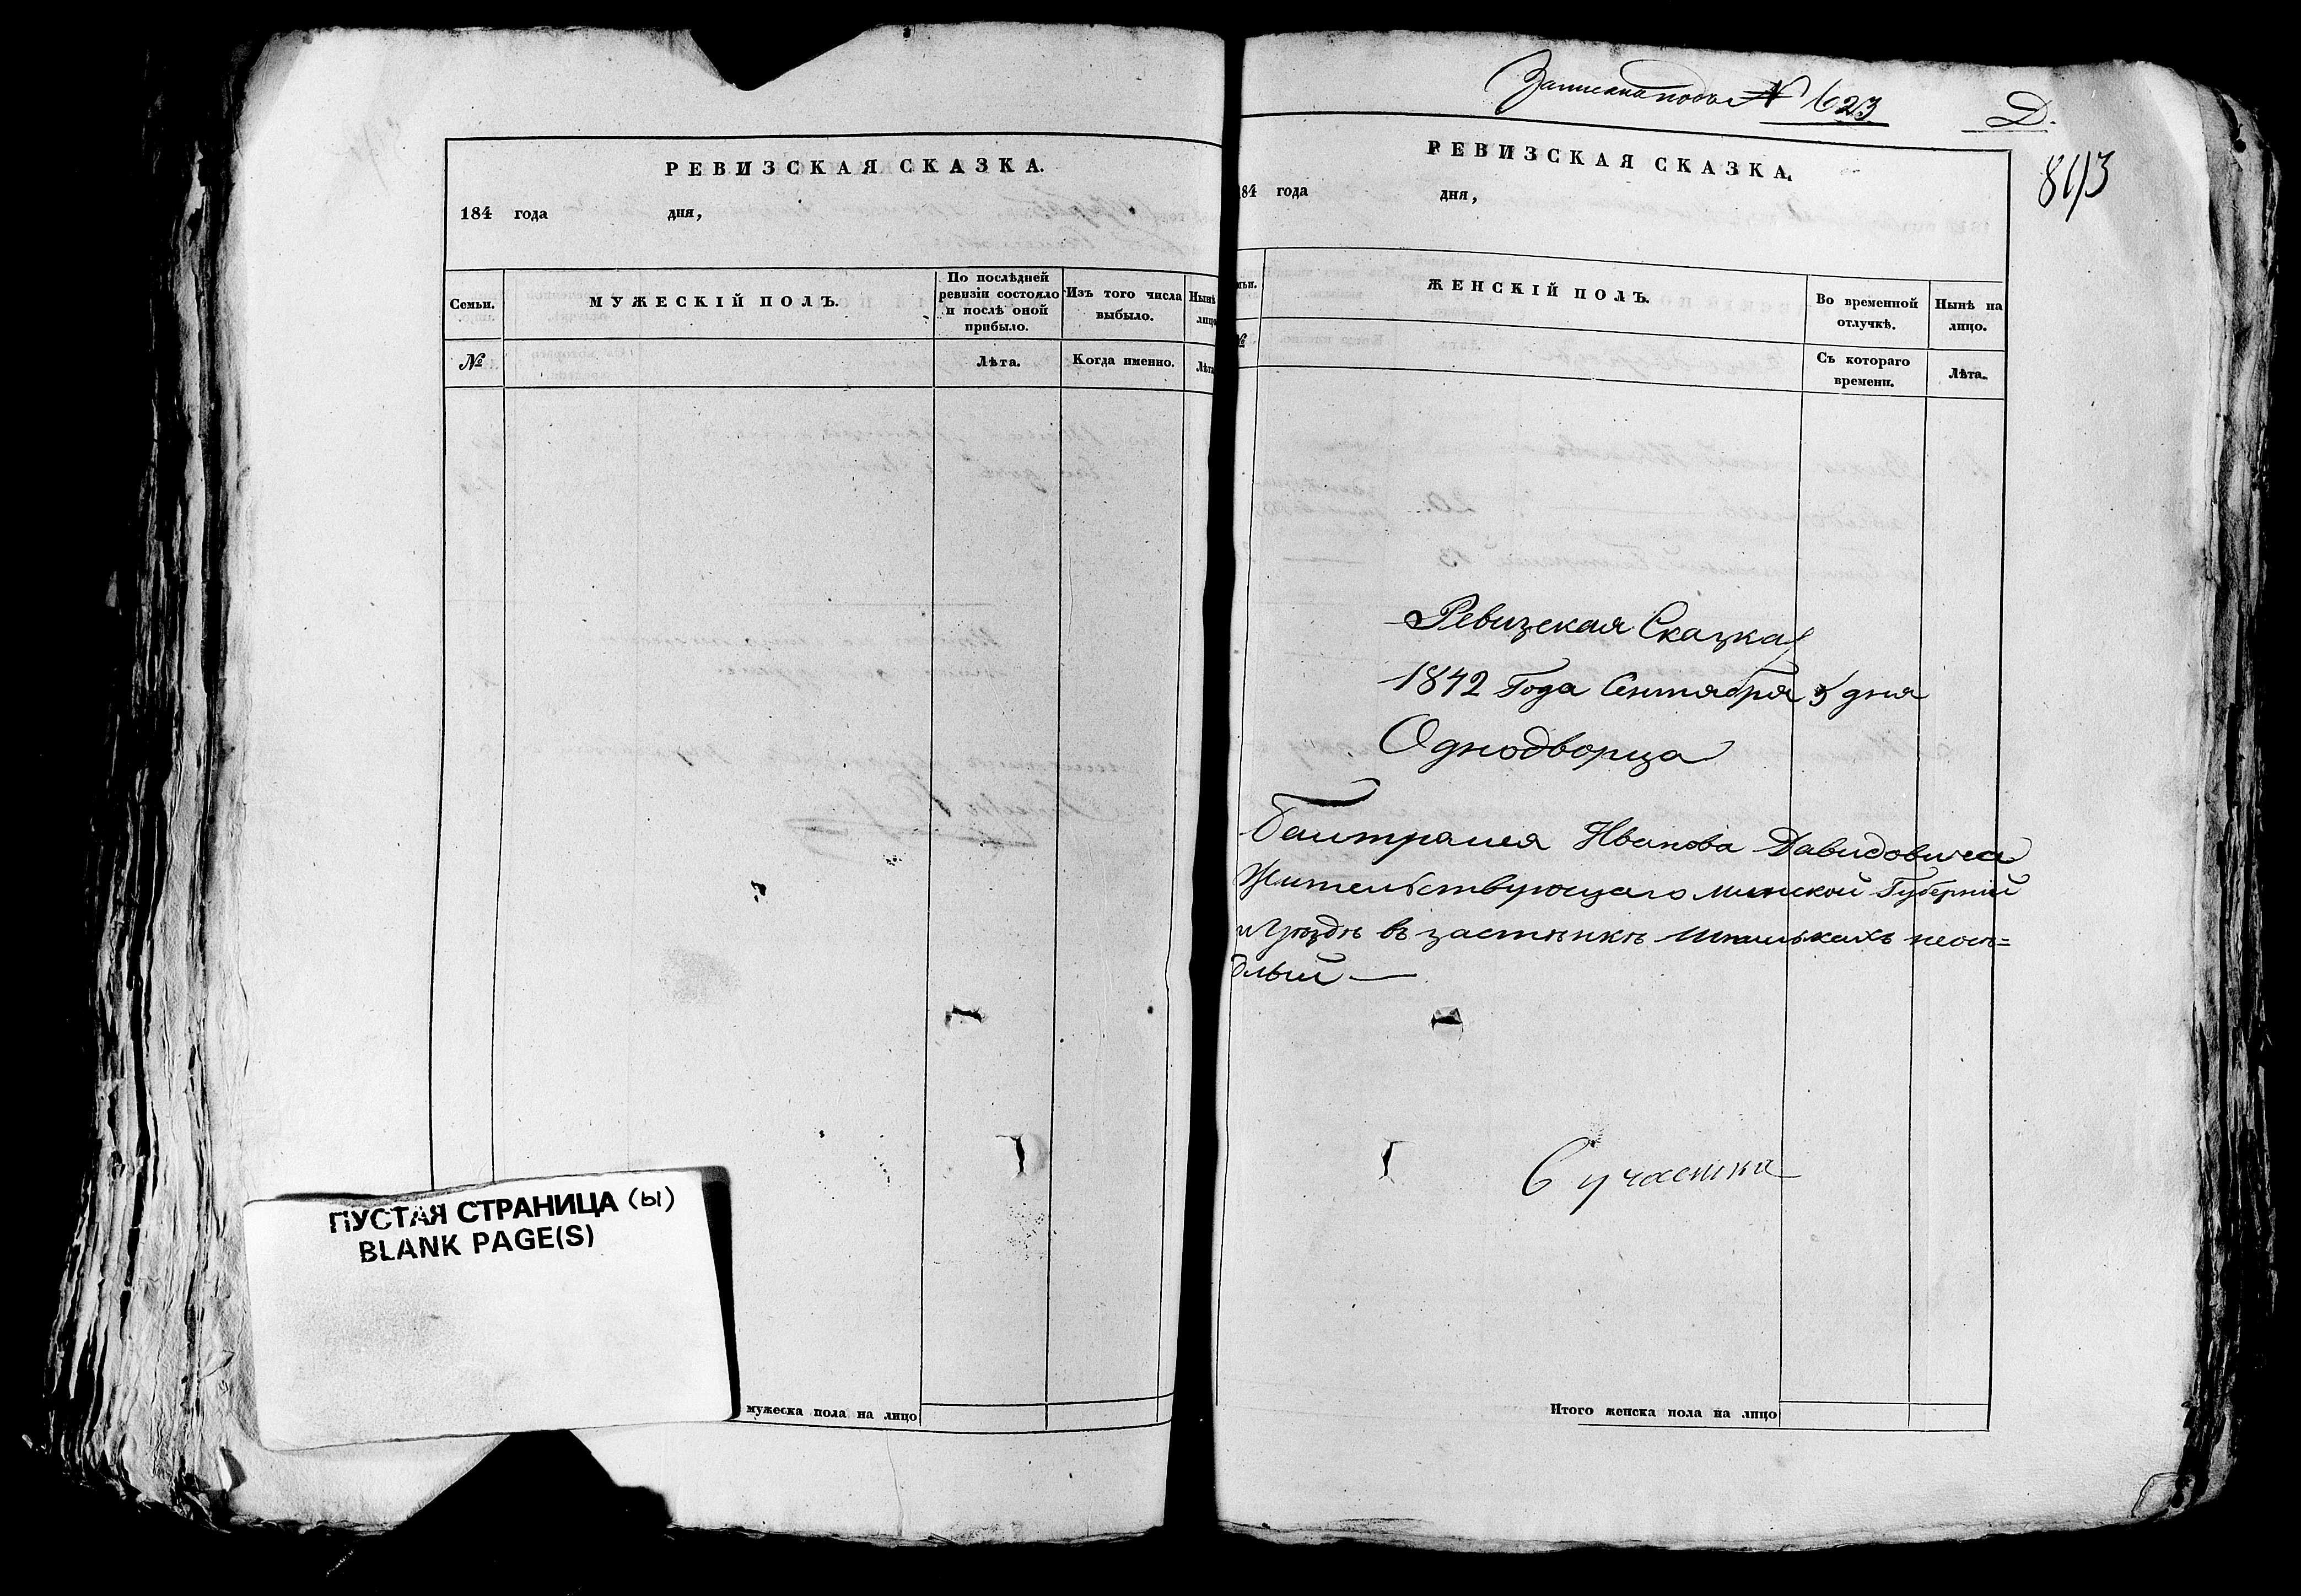 РЕВИЗСКАЯ СКАЗКА.
184 года дня,
Семьи.
МУЖЕСКІЙ ПОЛЪ.
По послѣдней
ревизіи состояло
и послѣ оной
прибыло.
Изъ того числа
выбыло.
Нынѣ
лицо
№
Лѣта.
Когда именно.
Лѣта
ПУСТАЯ СТРАНИЦА (ы)
BLANK PAGE(S)
мужеска пола на лицо
Записана подъ № 623
Д.
РЕВИЗСКАЯ СКАЗКА.
184 года дня,
ЖЕНСКІЙ ПОЛЪ.
Во временной
отлучкѣ.
Нынѣ на
лицо.
№
Съ котораго
времени.
Лѣта.
Ревизская Сказка
1842 Года Сентября 5 дня
Однодворца
Иванова Давидовича
Жительствующаго минской Губерніи
и уѣздѣ въ застѣнкѣ неосѣ=
длый —
6 участка
Итого женска пола на лицо